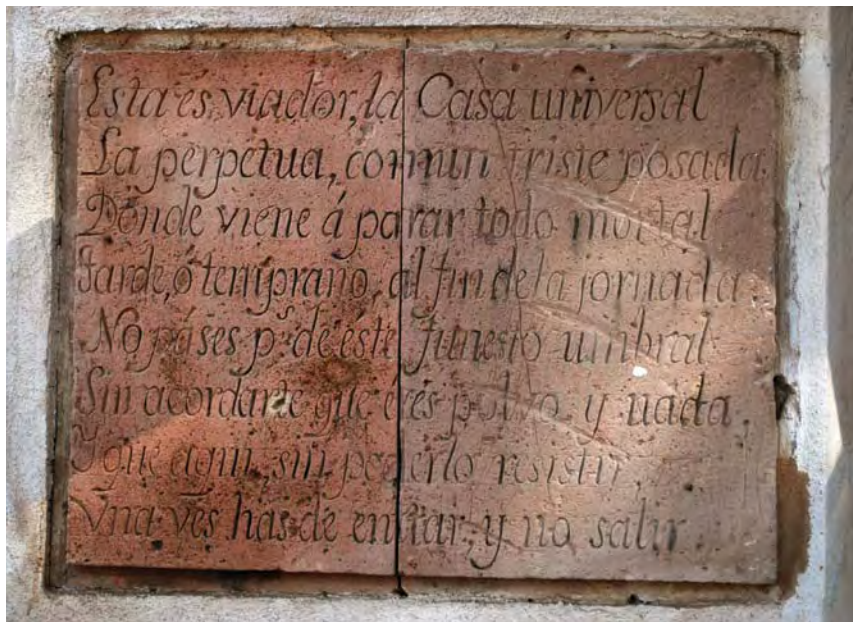 Esta és viador, la Casa universal
La perpetua, comun triste posada
Dónde viene á parar todo mortal
tarde, ó temprano, al fin de la jornada
No páses ps. de éste funesto umbral
Sin acordarte que éres polvo y nada
Y que aqui, sin poderlo resistir,
Vna vés has de entrar, y no salir